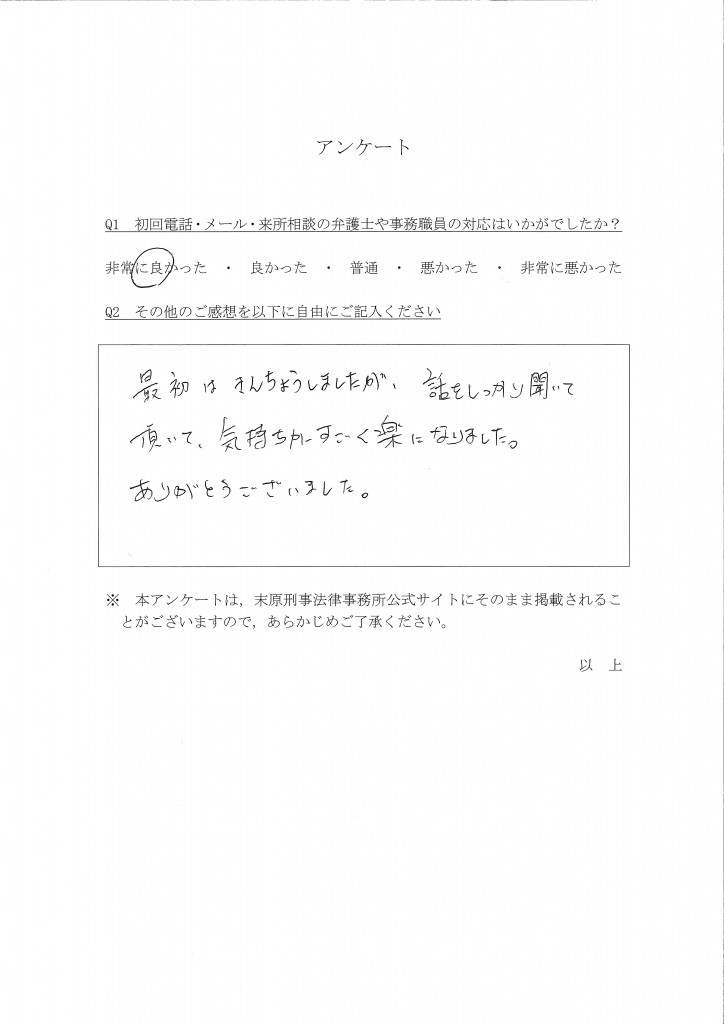 アンケート
Q1　初回電話・メール・来所相談の弁護士や事務職員の対応はいかがでしたか？
非常に良かった　・　良かった　・　普通　・　悪かった　・　非常に悪かった
Q2　その他のご感想を以下に自由にご記入ください
最初はきんちょうしましたが、話をしっかり聞いて
頂いて、気持ちがすごく楽になりました。
ありがとうございました。
※　本アンケートは，末原刑事法律事務所公式サイトにそのまま掲載されるこ
とがございますので，あらかじめご了承ください。
以　上